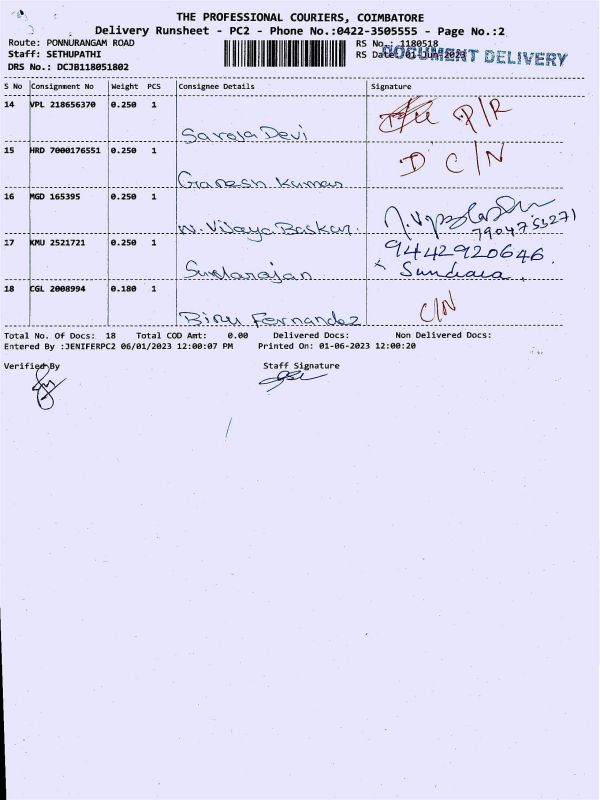 THE PROFESSIONAL COURIERS, COIMBATORE
Delivery Runsheet - PC2 - Phone No.:0422-3505555 - Page No.:2
Route: PONNURANGAM ROAD RS No.: 1180518
Staff: SETHUPATHI RS Date: 01-Jun-2023 DOCUMENT DELIVERY
DRS No.: DCJB118051802
S No Consignment No Weight PCS Consignee Details Signature
14 VPL 218656370 0.250 1
P/R
Saroja Devi
15 HRD 7000176551 0.250 1
D C/N
Ganesh Kumar
16 MGD 165395 0.250 1
N. Vijaya Baskar.
7904753271
17 KMU 2521721 0.250 1
9442920646.
Sundarajan
18 CGL 2008994 0.180 1
C/N
Binu Fernandez
Total No. Of Docs: 18 Total COD Amt: 0.00 Delivered Docs: Non Delivered Docs:
Entered By :JENIFERPC2 06/01/2023 12:00:07 PM Printed On: 01-06-2023 12:00:20
Verified By Staff Signature